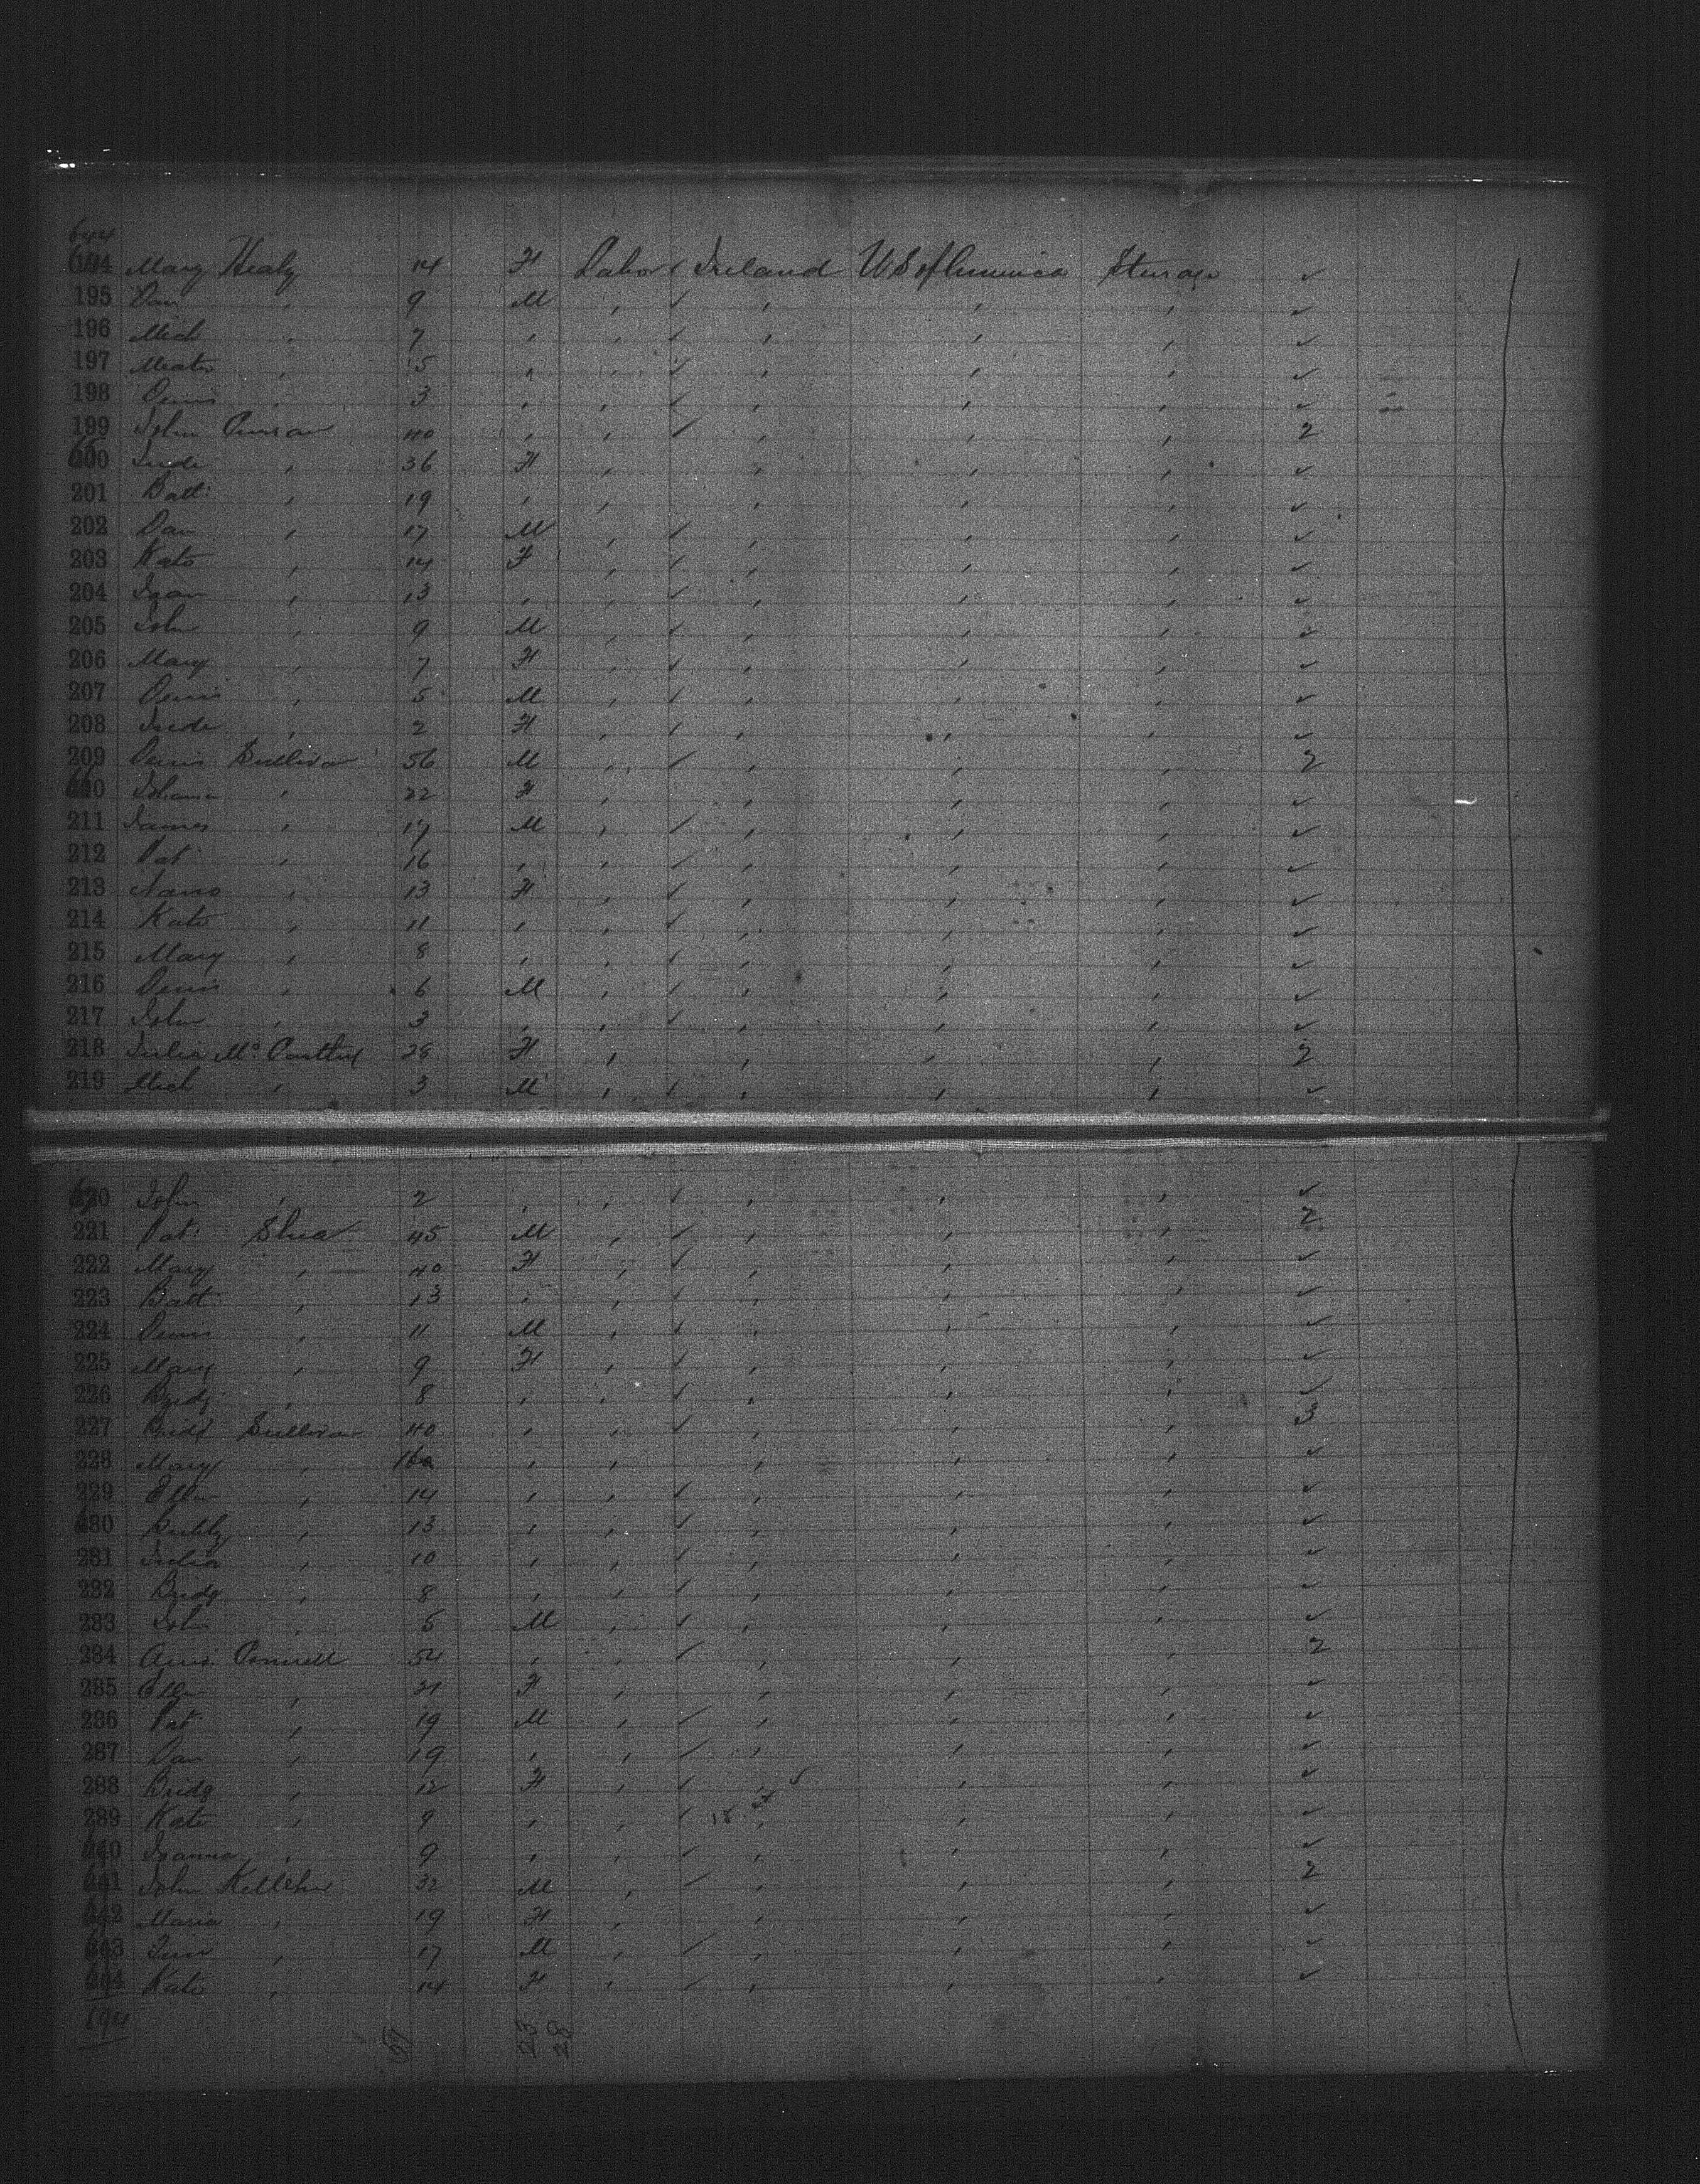 644
194 Mary Healy 14 F Labor ✓ Ireland U S of America Sterage ✓
195 Dan " 9 M " ✓ " " " ✓
196 Mich " 7 " " ✓ " " " ✓
197 " 5 " " ✓ " " " ✓
198 Denis " 3 " " ✓ " " " ✓
199 John 40 " " ✓ " " " 2
200 " 36 F " " " " ✓
201 Batt: " 19 " " " " " ✓
202 Dan " 17 M " ✓ " " " ✓
203 Kate " 14 F " ✓ " " " ✓
204 " 13 " " ✓ " " " ✓
205 John " 9 M " ✓ " " " ✓
206 Mary " 7 F " ✓ " " " ✓
207 Denis " 5 M " ✓ " " " ✓
208 " 2 F " ✓ " " " ✓
209 Denis Sullivan 56 M " ✓ " " " 2
210 " 22 F " " " " ✓
211 James " 17 M " ✓ " " " ✓
212 Pat " 16 " " ✓ " " " ✓
213 " 13 F " ✓ " " " ✓
214 Kate " 11 " " ✓ " " " ✓
215 Mary " 8 " " ✓ " " " ✓
216 Denis " 6 M " ✓ " " " ✓
217 John " 3 " " ✓ " " " ✓
218 Julia Mc Carthy 28 F " " " " 2
219 Mich " 3 M " ✓ " " " ✓
220 John " 2 " " ✓ " " " ✓
221 Pat: Shea 45 M " ✓ " " " 2
222 Mary " 40 F " ✓ " " " ✓
223 Batt " 13 " " ✓ " " " ✓
224 Denis " 11 M " ✓ " " " ✓
225 Mary " 9 F " ✓ " " " ✓
226 Bridg " 8 " " ✓ " " " ✓
227 Bridg Sullivan 40 " " ✓ " " " 3
228 Mary " 16 " " " " " ✓
229 Ellen " 14 " " ✓ " " " ✓
230 " 13 " " ✓ " " " ✓
231 Julia " 10 " " ✓ " " " ✓
232 Bridg " 8 " " ✓ " " " ✓
233 John " 5 M " ✓ " " " ✓
234 Connell 54 " " ✓ " " " 2
235 Ellen " 21 F " " " " ✓
236 Pat " 19 M " ✓ " " " ✓
237 Dan " 19 " " ✓ " " " ✓
238 Bridg " 12 F " ✓ " " " ✓
239 Kate " 9 " " ✓ 18 " " " ✓
240 Joanna " 9 " " ✓ " " " ✓
241 John Kelleher 32 M " ✓ " " " 2
242 Maria " 19 F " " " " ✓
243 Tim " 17 M " ✓ " " " ✓
244 Kate " 14 F " ✓ " " " ✓
694 51 23 28